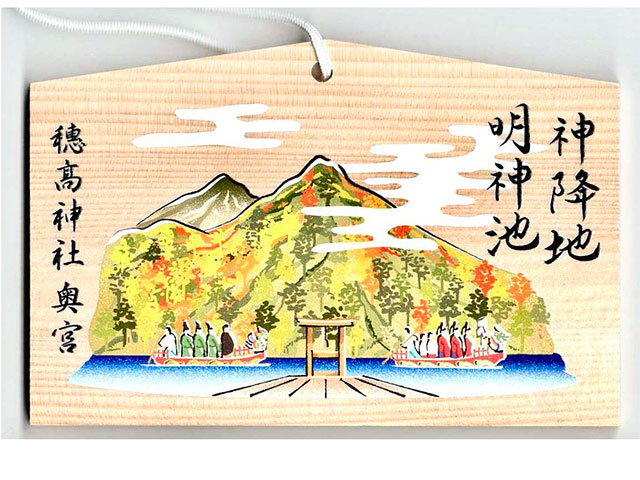 神降地
明神池
穂高神社奥宮